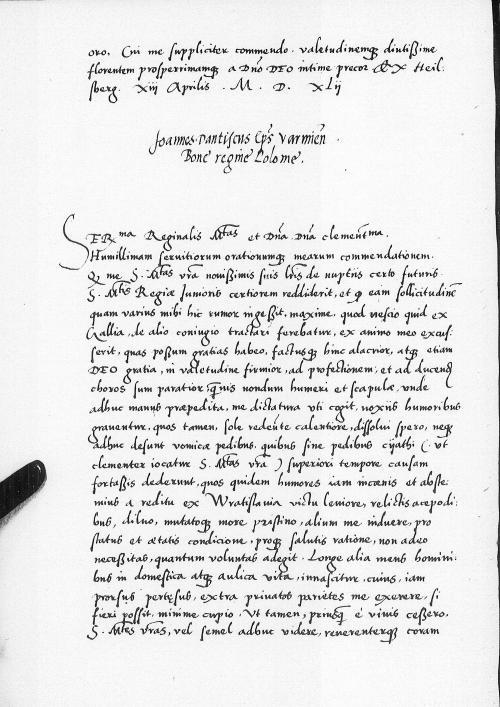 oro. Cui me suppliciter commendo. valetudinemq; diutissime
florentem prosperrimamq; a Dno DEO intime precor Ex Heil=
sberg. xiij Aprilis . M. D. XLij
Joannes Dantiscus Eps Varmien .
Bone regine Polonie.
SERma Reginalis Mtas et Dna Dna clementma.
Humillimam servitiorum orationumq; mearum commendationem.
Q me S. Mtas vra novissimis suis lris de nuptiis certo futuris
S. Mtis Regiae Junioris certiorem reddiderit, et q eam sollicitudine
quam varius mihi hic rumor ingessit, maxime, quod nescio quid ex
Gallia, de alio coniugio tractari ferebatur, ex animo meo excus=
serit, quas possum gratias habeo, factusq; hinc alacrior, atq; etiam
DEO gratia, in valetudine firmior, ad profectionem, et ad ducend
choros sum paratior, quis nondum humeri et scapulae, unde
adhuc manus praepedita, me dictatura uti cogit, noxiis humoribus
graventur, quos tamen, sole redeunte calentiore, dissolvi spero, neq;
adhuc desunt vomicae pedibus, quibus sine pedibus cyathi (: ut
clementer iocatur S. Mtas vra :) superiori tempore causam
fortassis dederunt, quos quidem humores iam in coenis et abste=
mius a reditu ex Wratislavia victu leviore, relictis acepodi=
bus, diluo, mutatoq; more pristino, alium me induere, pro
status et aetatis condicione, proq; salutis ratione, non adeo
necessitas, quantum voluntas adegit. Longe alia mens homini=
bus in domestica atq; aulica vita, innascitur, cuius, iam
prorsus pertesus, extra privatos parietes me exerere, si
fieri possit, minime cupio. Ut tamen, priusq e vivis cessero,
S. Mtes vras, vel semel adhuc videre, reverenterq; coram